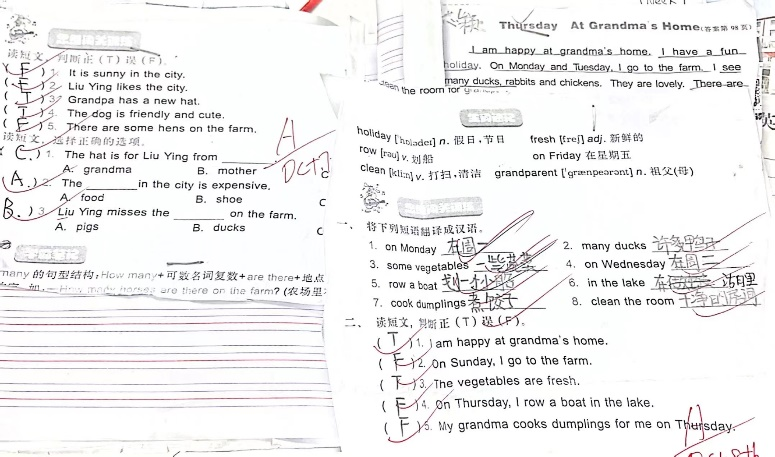 读短文，判断正（T）误（F）。
( F ) 1. It is sunny in the city.
( F ) 2. Liu Ying likes the city.
( T ) 3. Grandpa has a new hat.
( T ) 4. The dog is friendly and cute.
( F ) 5. There are some hens on the farm.
读短文，选择正确的选项。
( C. ) 1. The hat is for Liu Ying from
A. grandma B. mother C
( A. ) 2. The ______ in the city is expensive.
A. food B. shoe C
( B. ) 3. Liu Ying misses the ______ on the farm.
A. pigs B. ducks C
A
Oct
many 的句型结构：How many+可数名词复数+are there+地点
How many horses are there on the farm? (农场里
Thursday At Grandma's Home (答案第 98 页)
I am happy at grandma's home. I have a fun
holiday. On Monday and Tuesday, I go to the farm. I see
many ducks, rabbits and chickens. They are lovely. There are
clean the room for
holiday ['hɒlədeɪ] n. 假日,节日 fresh [freʃ] adj. 新鲜的
row [rəʊ] v. 划船 on Friday 在星期五
clean [kliːn] v. 打扫,清洁 grandparent ['grænpeərənt] n. 祖父(母)
一、 将下列短语翻译成汉语。
1. on Monday 在周一 2. many ducks 许多鸭子
3. some vegetables 一些蔬菜 4. on Wednesday 在周三
5. row a boat 划一个小船 6. in the lake 湖里
7. cook dumplings 煮饺子 8. clean the room 干净的房间
二、 读短文,判断正（T）误（F）。
( T ) 1. I am happy at grandma's home.
( F ) 2. On Sunday, I go to the farm.
( T ) 3. The vegetables are fresh.
( F ) 4. On Thursday, I row a boat in the lake.
( F ) 5. My grandma cooks dumplings for me on Thursday.
A